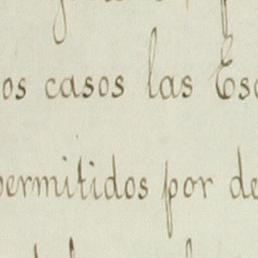 os casos las Esc
permitidos por de